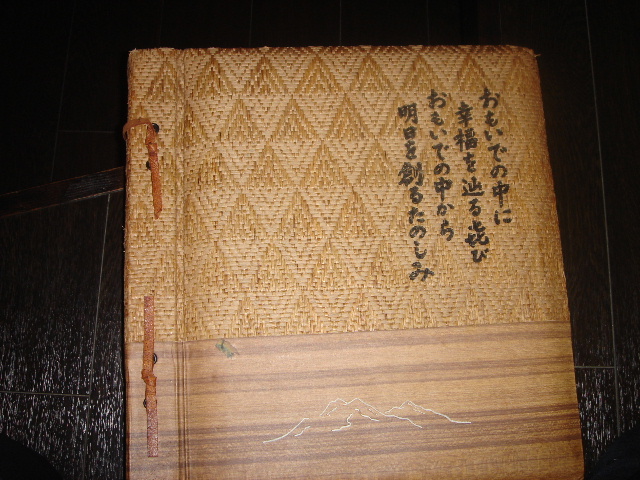 おもいでの中に
幸福を辿る喜び
おもいでの中から
明日を創るたのしみ